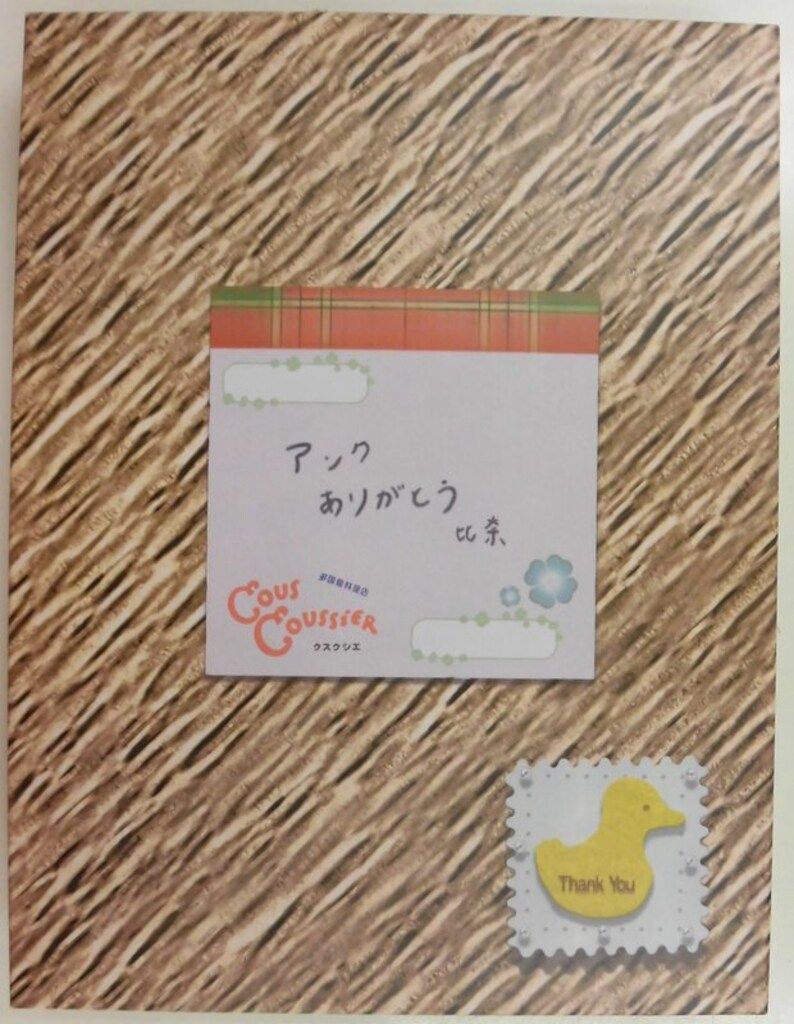 アンク
ありがとう
比奈
多国籍料理店
Cous
Coussier
クスクシエ
Thank You